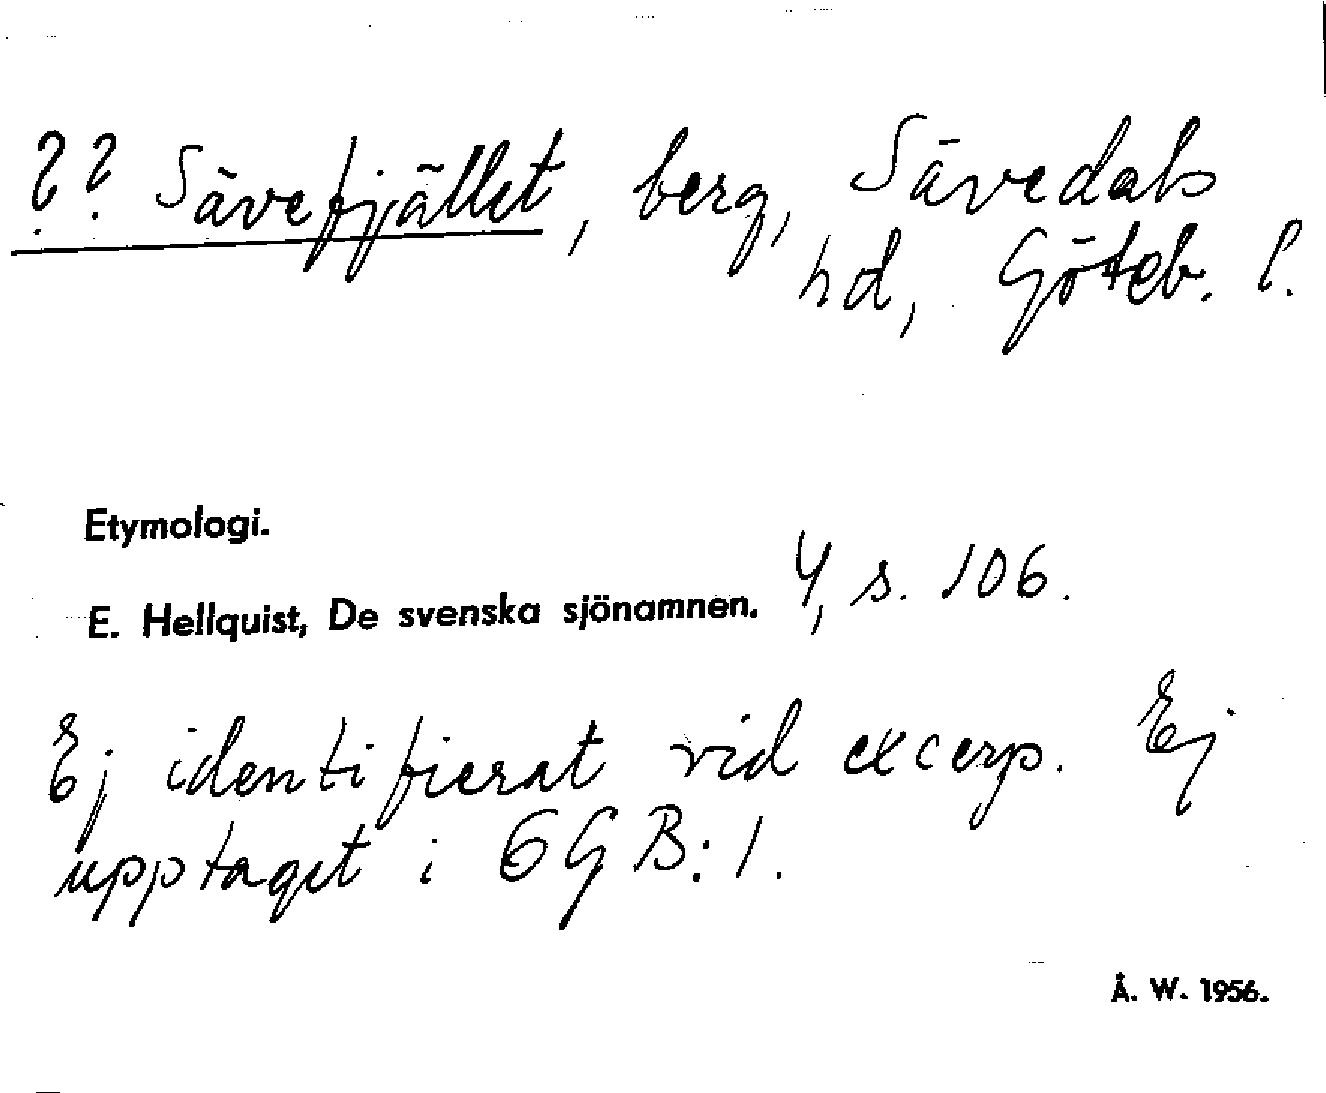 ?? Sävefjället, berg, Sävedals
hd, Göteb. l.
Etymologi.
E. Hellquist, De svenska sjönamnen. 4, s. 106.
Ej identifierat vid excerp. Ej
upptaget i OGB: 1.
Å. W. 1956.